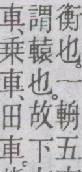 衡也。一輈五
謂轅也。故下
車、乗車、田車。